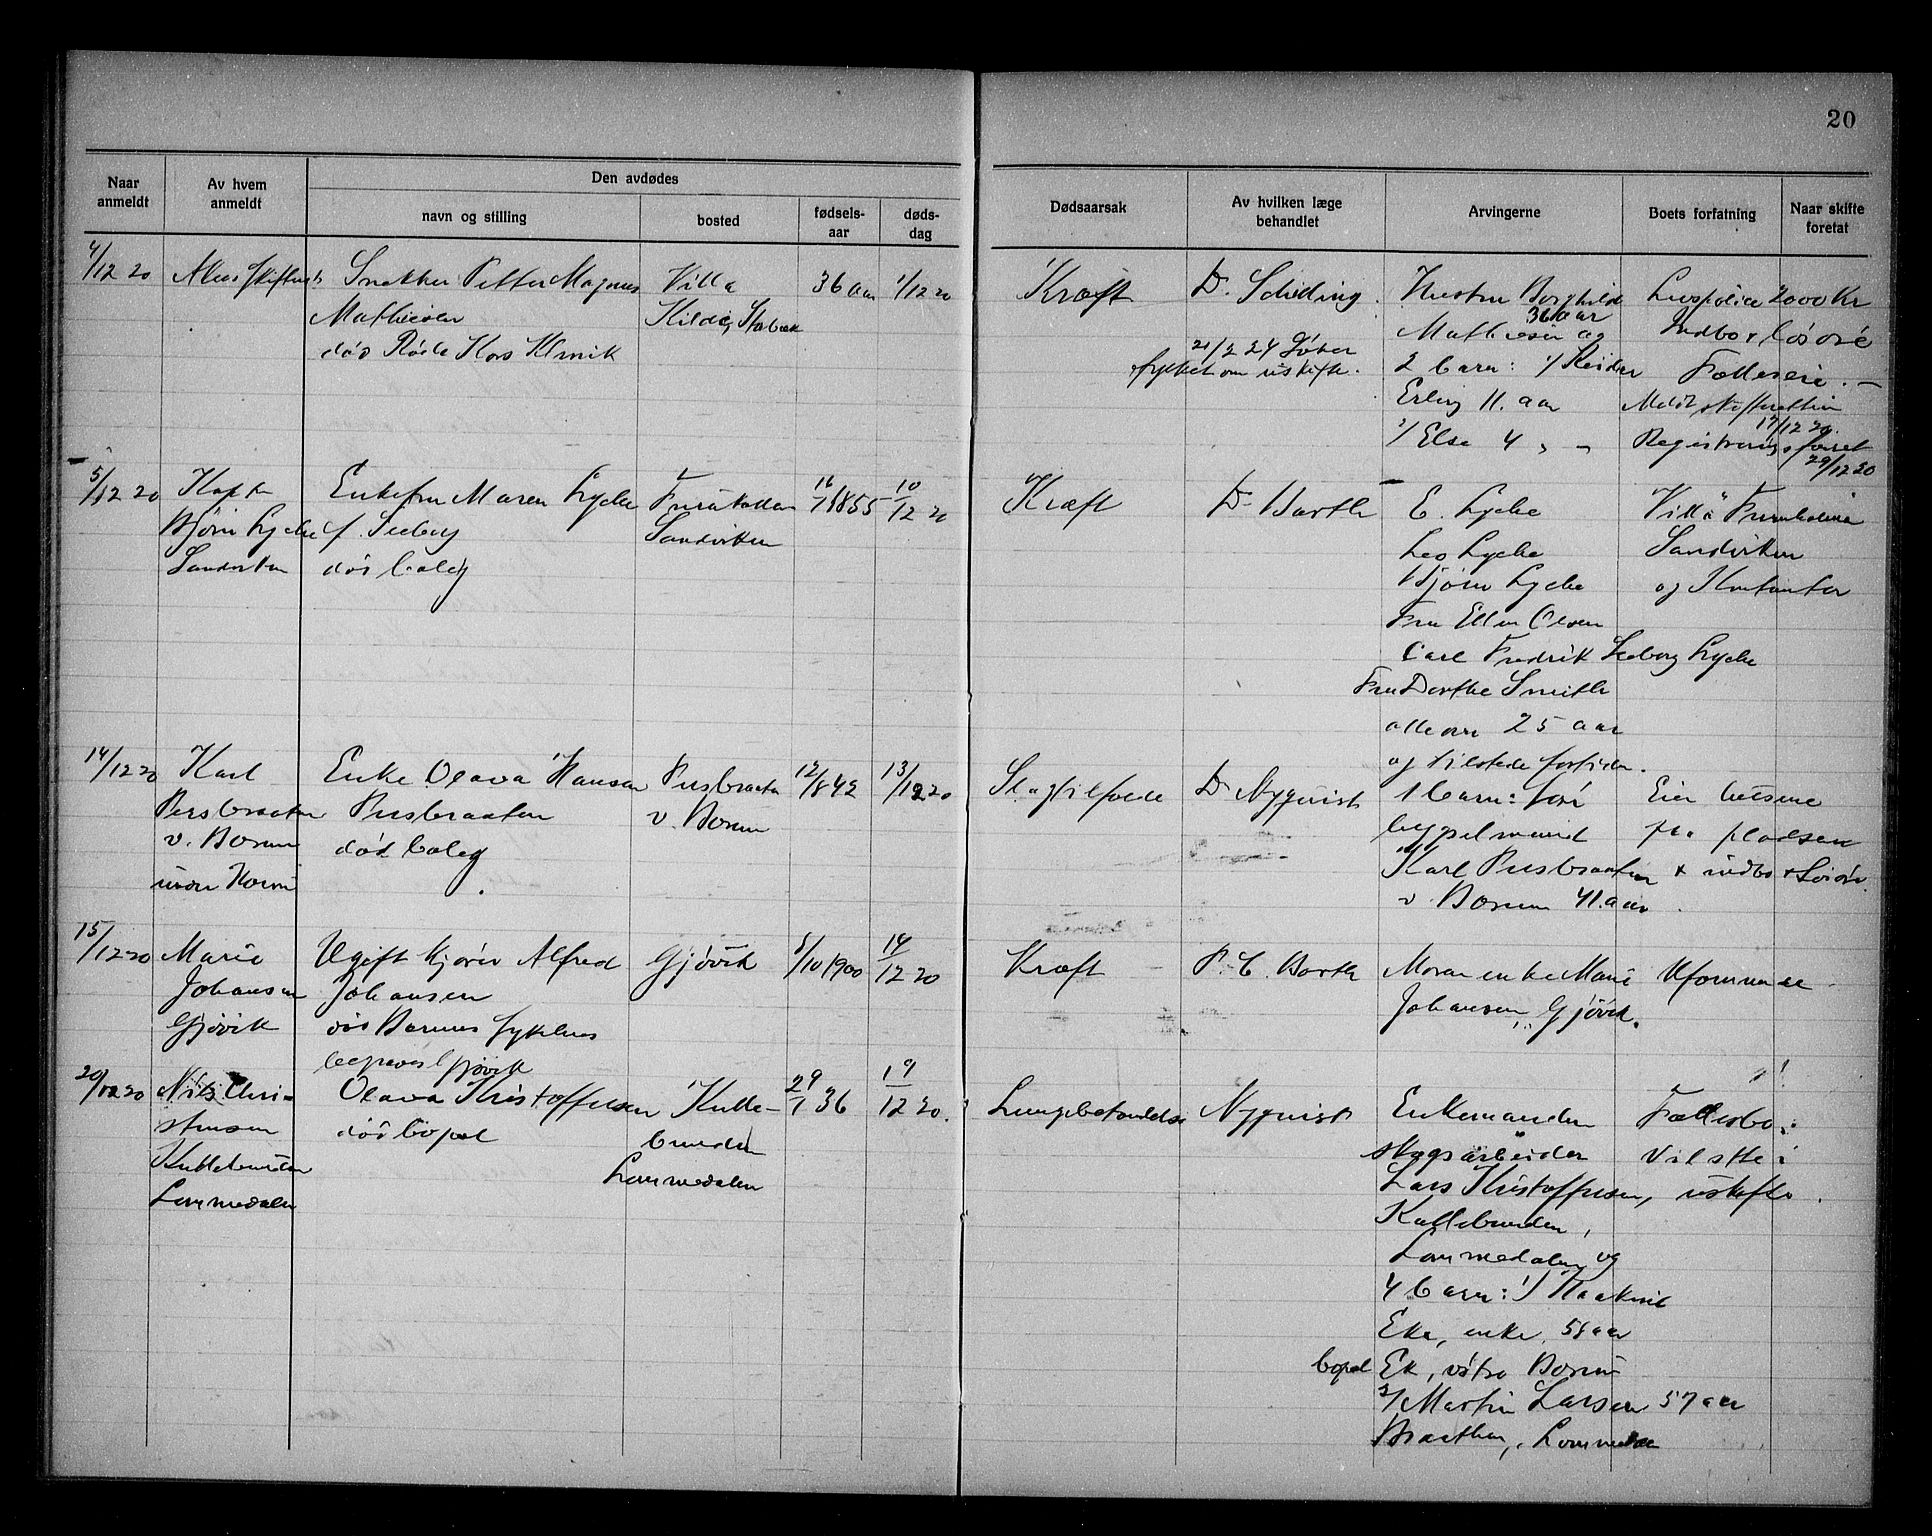 20
Naar anmeldt
Av hvem anmeldt
Den avdødes
navn og stilling
bosted
fødsels-aar
døds-dag
Dødsaarsak
Av hvilken læge behandlet
Arvingerne
Boets forfatning
Naar skifte foretat
4/12 20
Snekker Petter Magnus
Mathiesen
død Røde Kors Klinik
Villa
Stabæk
36 aar
1/12 20
Kræft
D.
21/2 24
om uskifte.
Hustru Borghild
36 aar
Mathiesen og
2 barn: 1/ Reidar
Erling 11. aar
2/ Else 4 " -
2000 Kr
Indbo + løsøre
Fælleseie. -
17/12 20.
Registrering
29/12 20
5/12 20
Bjørn Lyche
Sandviken
Enkefru Maren Lyche
f. Seeberg
død bolig
Sandviken
16/7 1855
10/12 20
Kræft
D. Barth
E. Lyche
Leo Lyche
Bjørn Lyche
Fru Ellen Olsen
Carl Fredrik Seeberg Lyche
Fru Dorthe Smith
alle over 25 aar
og tilstede fortiden.
Villa
Sandviken
og Kontanter
14/12 20
Karl
Pusbraaten
v. Bærum
Enke Olava Hansen
Pusbraaten
død bolig
Pusbraaten
v. Bærum
12/8 42
13/12 20
Slagtilfælde
D. Nyquist
1 barn:
Karl Pusbraaten
v. Bærum 41. aar
Eier husene
paa pladsen
+ indbo + Løsøre.
15/12 20
Marie
Johansen
Gjøvik
Ugift kjører Alfred
Johansen
død Bærums Sykehus
begraves Gjøvik
Gjøvik
5/10 1900
14/12 20
Kræft
P. C. Barth
Moren enke Marie
Johansen, Gjøvik.
Uformuende
20/12 20
Nils Chri-
stensen
Kullebunden
Lommedalen
Olava Kristoffersen
død bopæl
Kulle-
bunden
Lommedalen
29/1 36
19/12 20.
Lungebetændelse
Nyquist
Enkemanden
skogsarbeider
Lars Kristoffersen,
Kullebunden,
Lommedalen og
4 barn: 1/
enke, 58 aar
bopæl Ek, vestre Bærum
2/ Martin Larsen 57 aar
Braathen, Lommedal
Fællesbo:
Vil sitte i
uskifte.